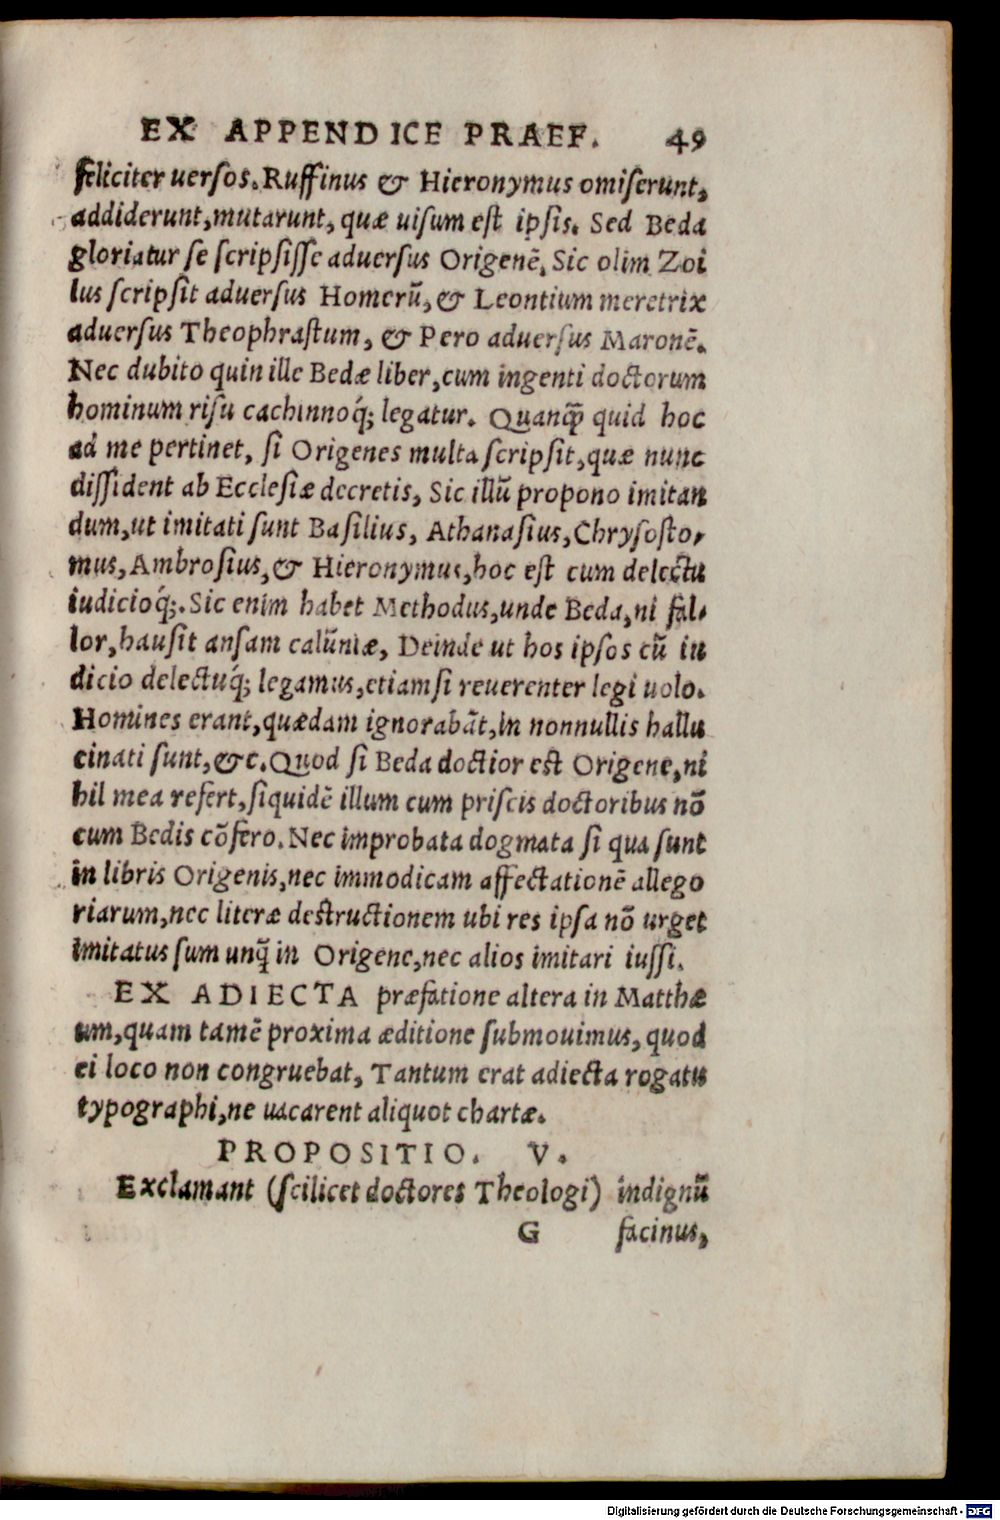 EX APPENDICE PRAEF. 49
feliciter uersos. Ruffinus & Hieronymus omiserunt,
addiderunt, mutarunt, quæ uisum est ipsis. Sed Beda
gloriatur se scripsisse aduersus Origenē. Sic olim Zoi
lus scripsit aduersus Homerū, & Leontium meretrix
aduersus Theophrastum, & Pero aduersus Maronē.
Nec dubito quin ille Bedæ liber, cum ingenti doctorum
hominum risu cachinnoq́; legatur. Quanq̃ quid hoc
ad me pertinet, si Origenes multa scripsit, quæ nunc
dissident ab Ecclesiæ decretis, Sic illū propono imitan
dum, ut imitati sunt Basilius, Athanasius, Chrysosto-
mus, Ambrosius, & Hieronymus, hoc est cum delectu
iudicioq́;. Sic enim habet Methodus, unde Beda, ni fal-
lor, hausit ansam calūniæ, Deinde ut hos ipsos cū iu
dicio delectuq́; legamus, etiamsi reuerenter legi uolo.
Homines erant, quædam ignorabāt, in nonnullis hallu
cinati sunt, &c. Quod si Beda doctior est Origene, ni
hil mea refert, siquidē illum cum priscis doctoribus nō
cum Bedis cōfero. Nec improbata dogmata si qua sunt
in libris Origenis, nec immodicam affectationē allego
riarum, nec literæ destructionem ubi res ipsa nō urget
imitatus sum unq̃ in Origene, nec alios imitari iussi.
EX ADIECTA præfatione altera in Matthæ
um, quam tamē proxima æditione submouimus, quod
ei loco non congruebat, Tantum erat adiecta rogatu
typographi, ne uacarent aliquot chartæ.
PROPOSITIO. V.
Exclamant (scilicet doctores Theologi) indignū
G facinus,
Digitalisierung gefördert durch die Deutsche Forschungsgemeinschaft - DFG